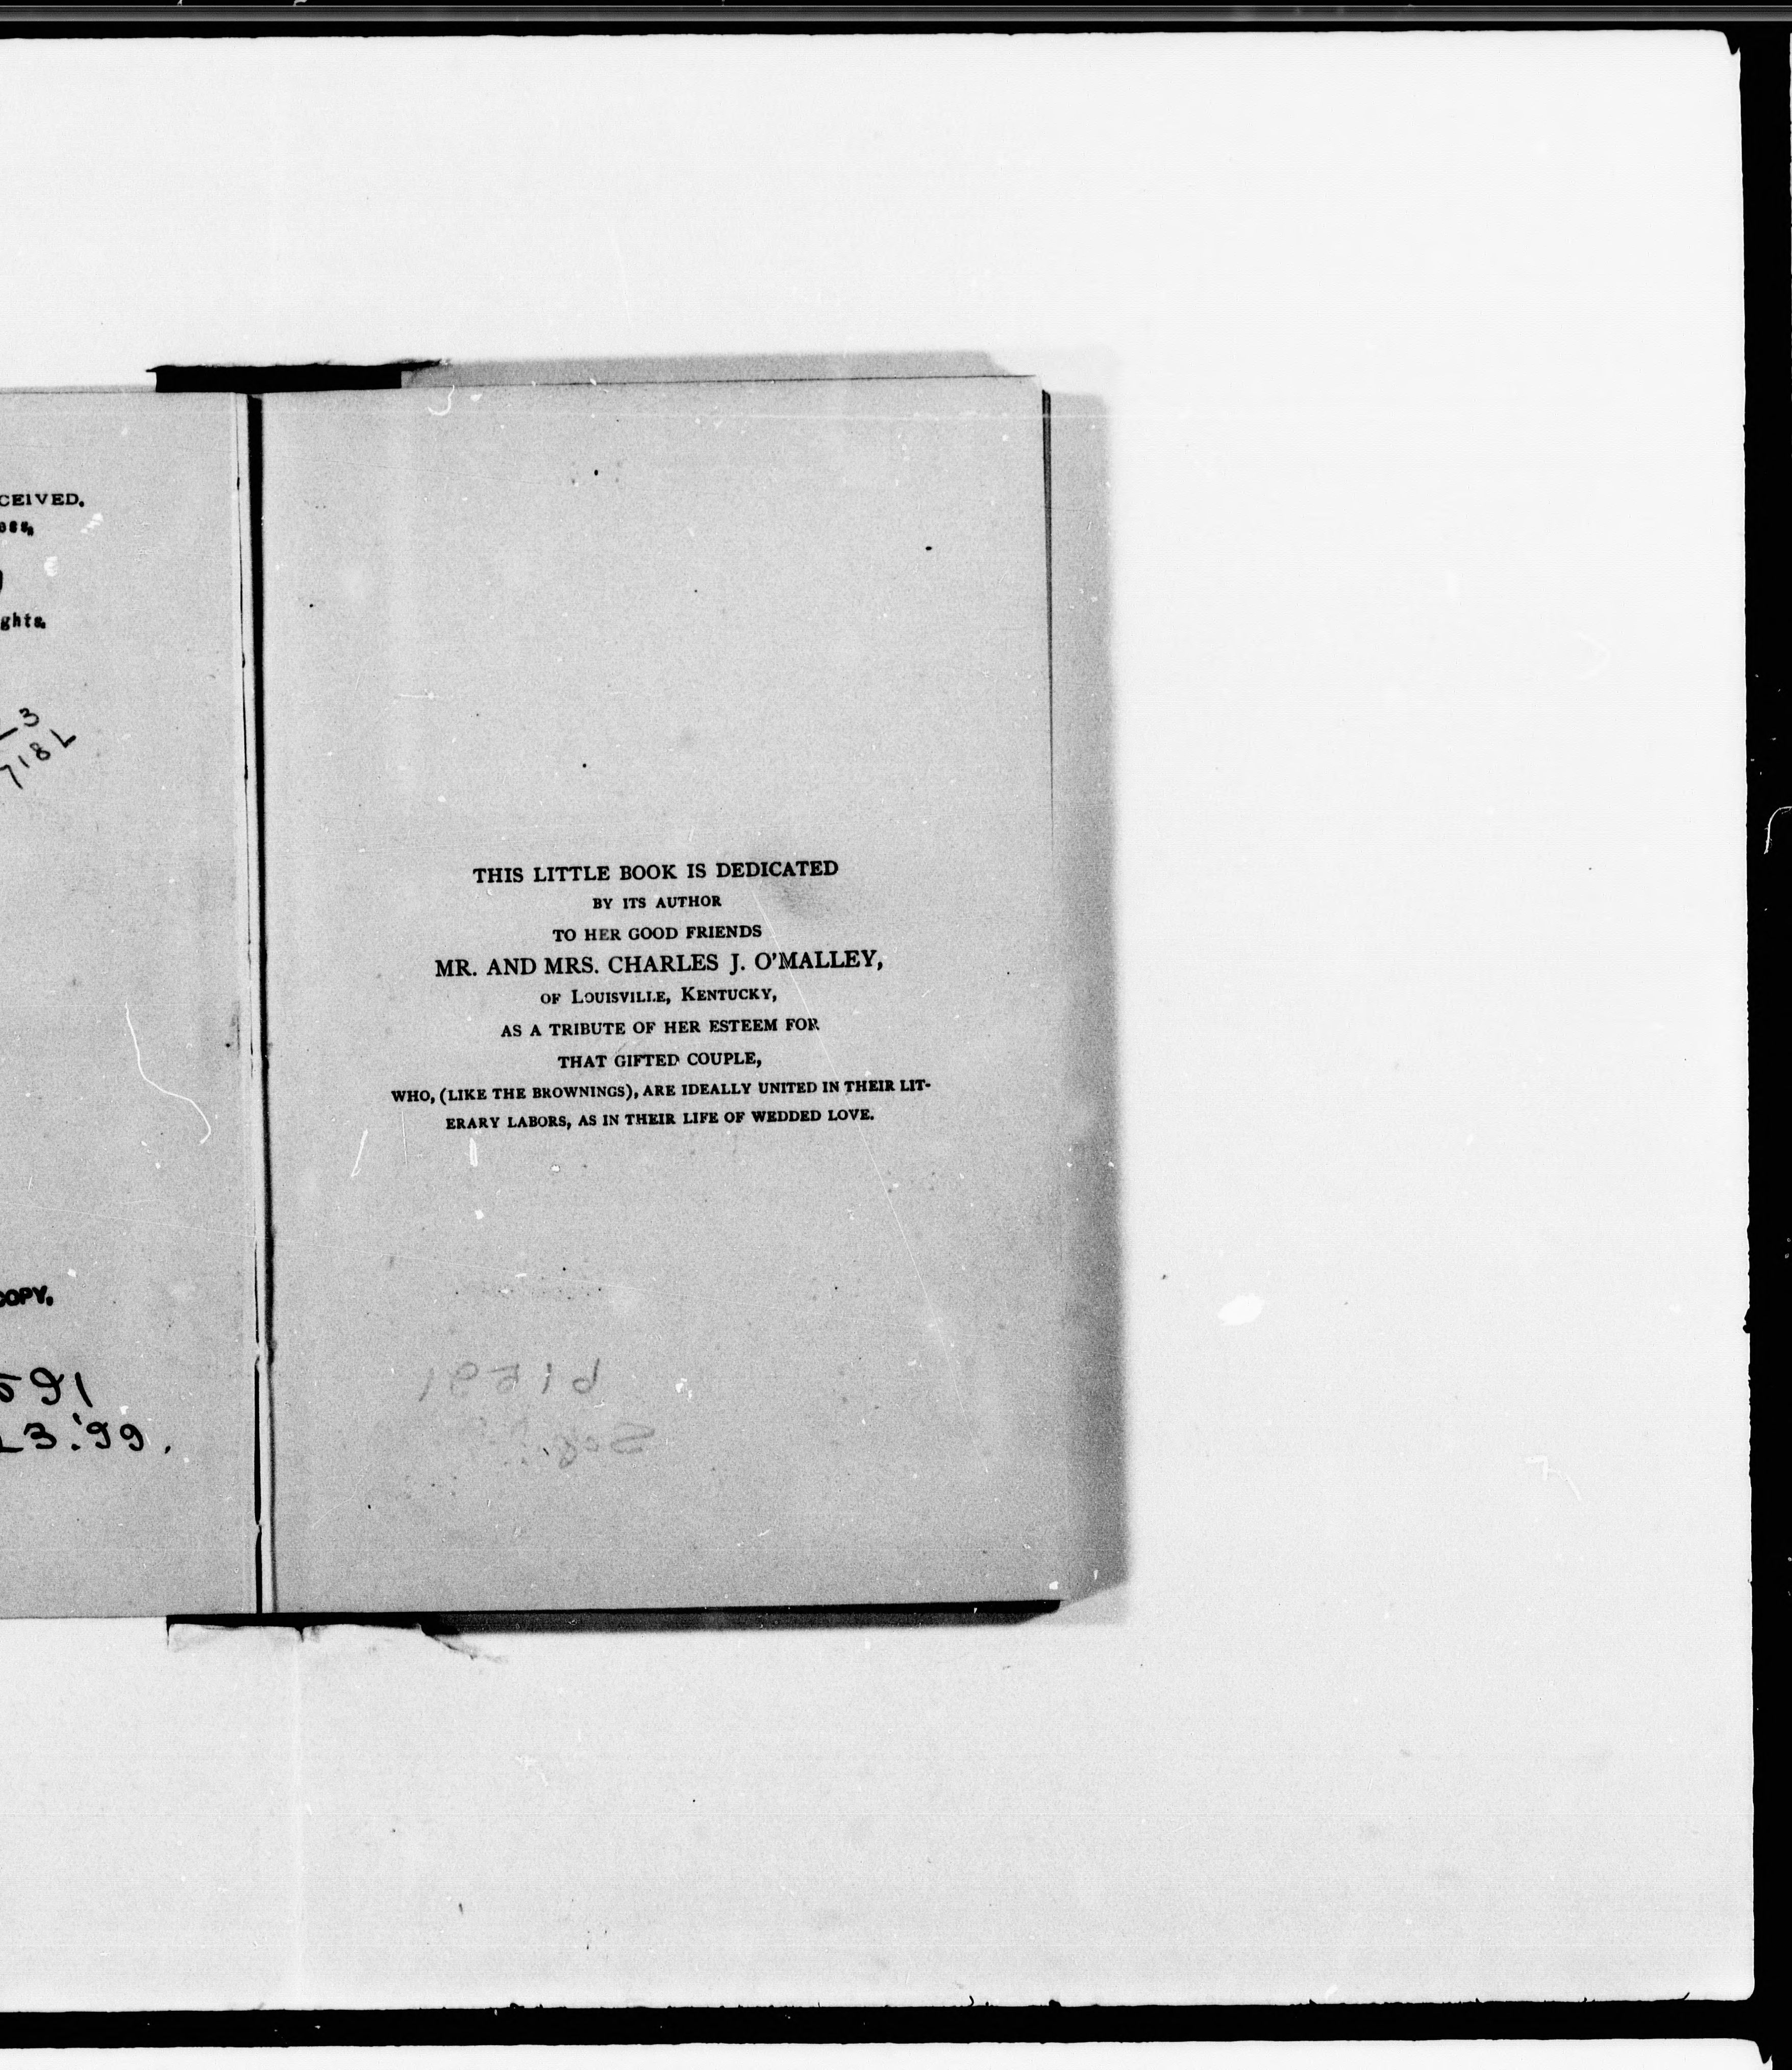 CEIVED.
ghts.
3
718L
COPY.
591
3.'99.
THIS LITTLE BOOK IS DEDICATED
BY ITS AUTHOR
TO HER GOOD FRIENDS
MR. AND MRS. CHARLES J. O'MALLEY,
OF LOUISVILLE, KENTUCKY,
AS A TRIBUTE OF HER ESTEEM FOR
THAT GIFTED COUPLE,
WHO, (LIKE THE BROWNINGS), ARE IDEALLY UNITED IN THEIR LIT-
ERARY LABORS, AS IN THEIR LIFE OF WEDDED LOVE.